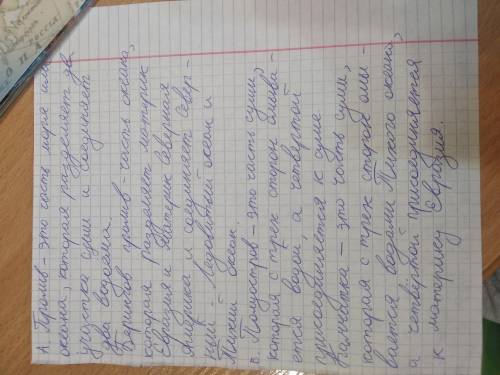 А. Пролив - это часть моря или
океана, которая разделяет два
участка суши и соединяет
два водоёма.
Берингов пролив - часть океана,
которая разделяет материк
Евразия и материк Северная
Америка и соединяет Север-
ный Ледовитый океан и
Тихий океан.
В. Полуостров - это часть суши,
которая с трёх сторон омыва-
ется водой, а четвёртой
присоединяется к суше
Камчатка - это часть суши,
которая с трех сторон омы-
вается водами Тихого океана,
а четвёртой присоединяется
к материку Евразия.